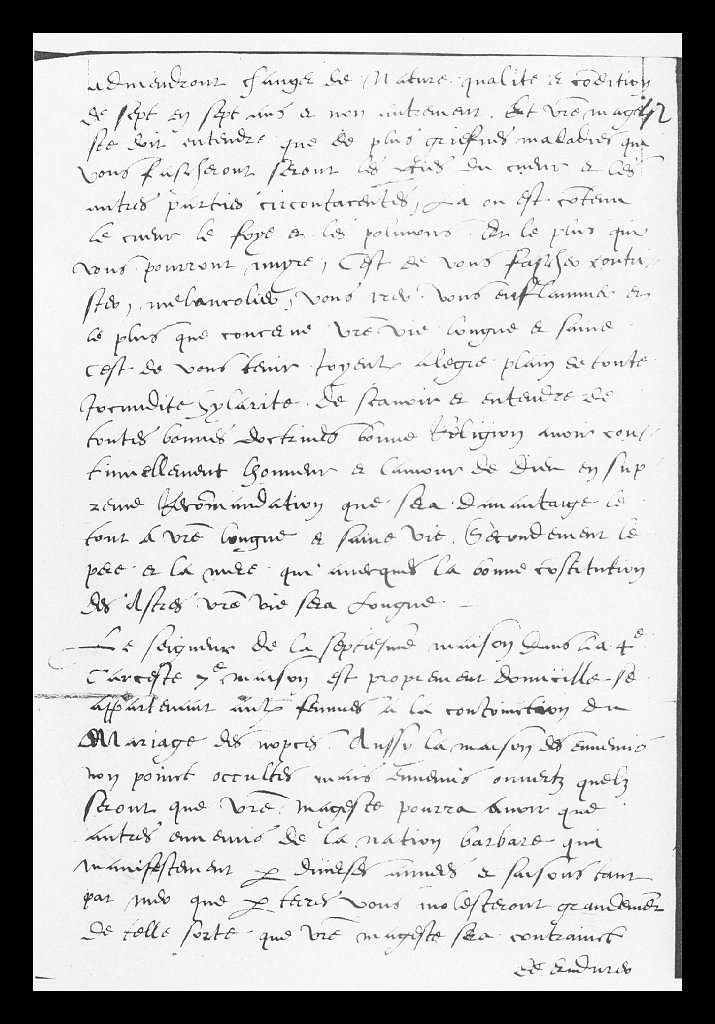 admendront changer de Nature qualite et cōdition
de sept en sept ans et non autrement. Et vrē mage
42
ste doit entendre que de plus griefues maladies qui
vous fascheront seront les du cueur et les
autres parties circontacentes, La ou est cōtenu
le cueur le foye et les polmons. Et le plus qui
vous pourront nuyre, C'est de vous fascher contri-
ster, melancolier, vous irer vous enflammer et
le plus que concerne vrē vie longue et saine
c'est de vous tenir Joyeux alegre plain de toute
Jocundite hylarite de scauoir et entendre de
toutes bonnes doctrines bonne Religion auoir con-
tinuellement lhonneur et lamour de dieu en sup
reme Recōmandation que sera dauantaige le
tout a vrē longue et saine vie. Secondement le
pere et la mere qui auecques la bonne cōstitution
des Astres vrē vie sera Longue
Le seigneur de la septiesme maison dans la 4e
Car ceste 7e maison est proprement domicille se
appartenant aux femmes a la conionction du
Mariage des nopces. Aussy la maison des Ennemis
non poinct occultes mais Ennemis ouuertz quelz
seront que vrē mageste pourra auoir que
autres ennemis de la nation barbare qui
manifestement p diuerses annees et saisons tant
par mer que p terres vous molesteront grandemēt
de telle sorte que vrē mageste sera contrainct
de endurer